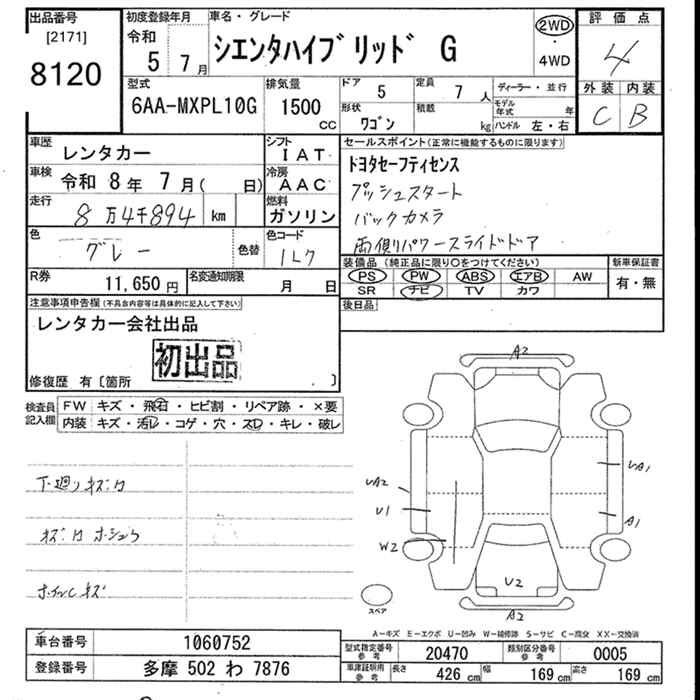 出品番号
[2171]
8120
初度登録年月
令和
5年 7月
車名・グレード
シエンタハイブリッド G
2WD
・
4WD
評価点
4
外装 内装
C B
型式
6AA-MXPL10G
排気量
1500
CC
ドア
5
定員
7人
形状
ワゴン
積載
kg
ディーラー・並行
モデル年式 年
ハンドル 左・右
車歴
レンタカー
シフト
IAT
車検
令和 8年 7月( 日)
冷房
AAC
走行
8万4千894 km
燃料
ガソリン
色
グレー
色替
色コード
1L7
R券
11,650円
名変通知期限
月 日
セールスポイント(正常に機能するものに限ります)
トヨタセーフティセンス
プッシュスタート
バックカメラ
両側パワースライドドア
装備品(純正品に限り○をつけてください)
PS PW ABS エアB AW
SR ナビ TV カワ
新車保証書
有・無
後日品
注意事項申告欄(不具合内容等は具体的に記入して下さい)
レンタカー会社出品
初出品
修復歴 有〔箇所 〕
検査員記入欄
FW キズ・飛石・ヒビ割・リペア跡・×要
内装 キズ・汚レ・コゲ・穴・スレ・キレ・破レ
下廻りキズ
ホイルキズ
A2
UA2
U1
W2
UA1
A1
U2
A2
スペア
A-キズ E-エクボ U-凹み W-補修跡 S-サビ C-腐食 XX-交換済
車台番号 1060752
登録番号 多摩 502 わ 7876
型式指定番号 参考 20470
類別区分番号 参考 0005
車庫証明用 参考 長さ 426 cm 幅 169 cm 高さ 169 cm